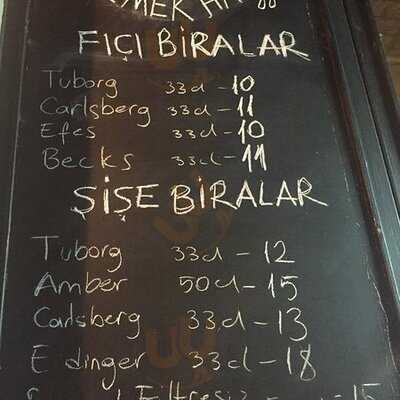 FIÇI BİRALAR
Tuborg 33cl - 10
Carlsberg 33cl - 11
Efes 33cl - 10
Becks 33cl - 11
ŞİŞE BİRALAR
Tuborg 33cl - 12
Amber 50cl - 15
Carlsberg 33cl - 13
Erdinger 33cl - 18
Filtresiz - 15